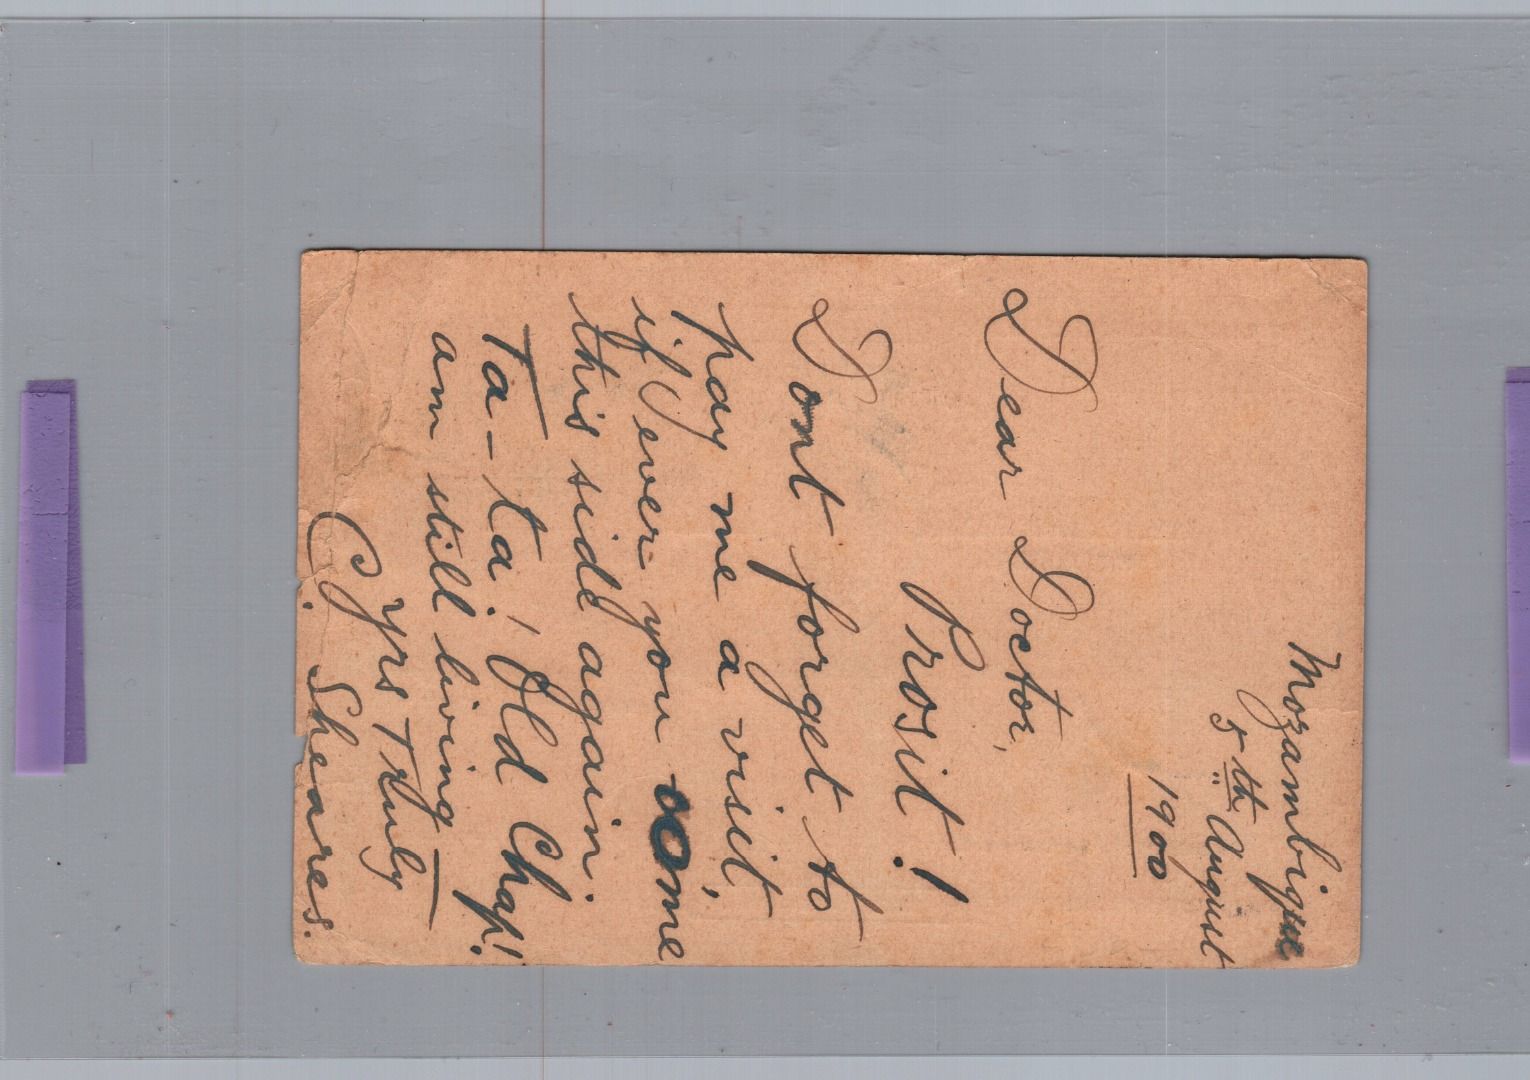 Mozambique
5th August
1900
Dear Doctor,
Prosit!
Dont forget to
pay me a visit,
if ever you come
this side again.
Ta-ta! Old Chap!
am still living —
Yrs Truly
C. Sheares.